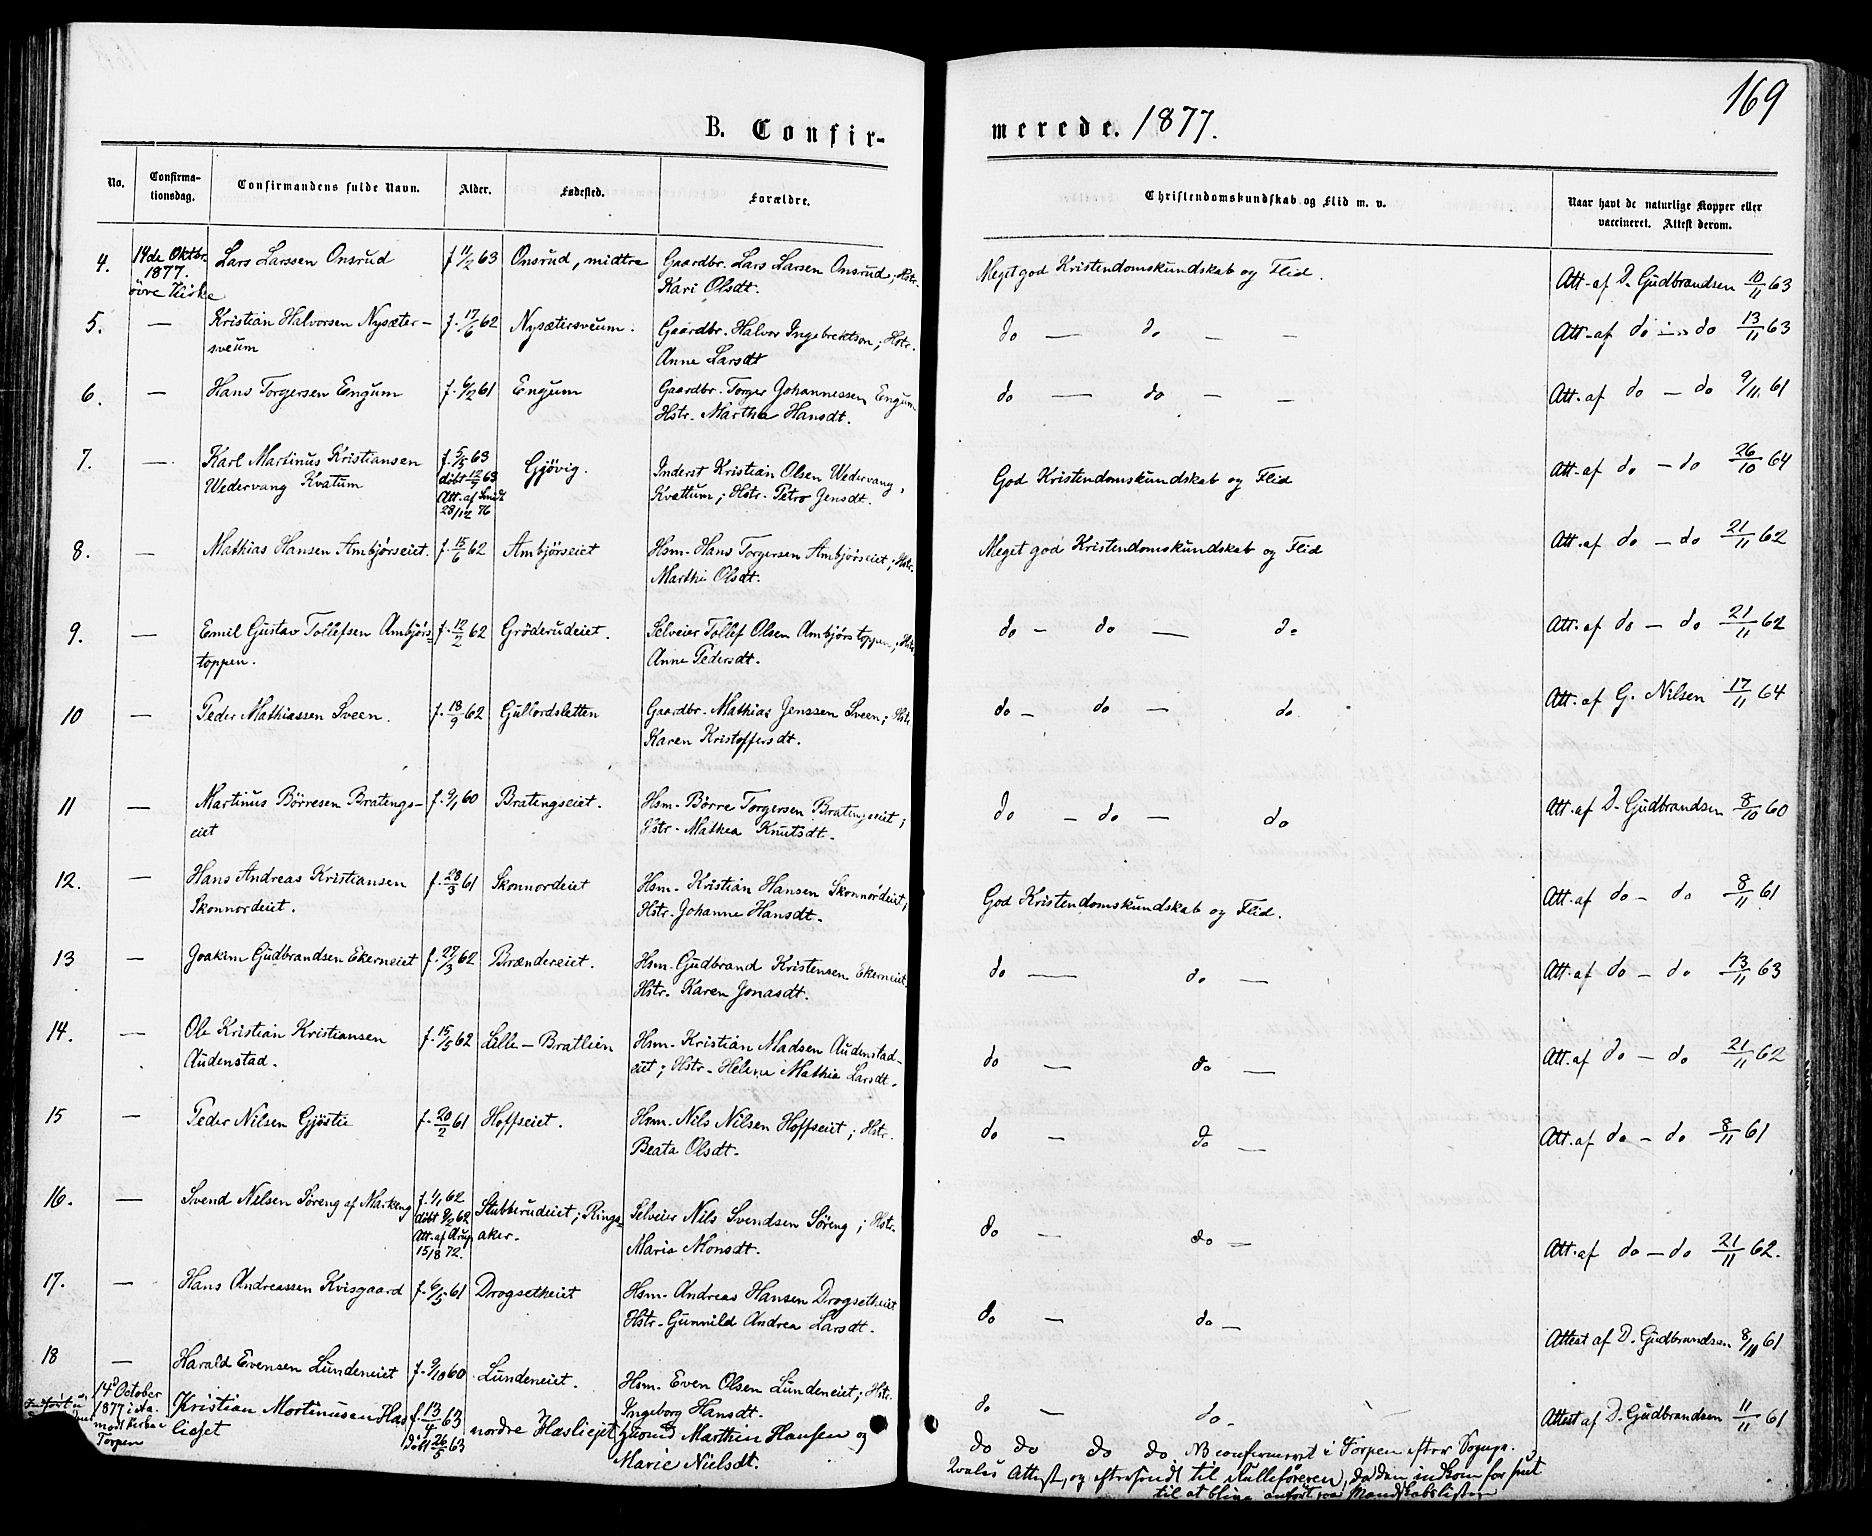 169
B. Confir- merede. 1877.
No. Confirma- tionsdag. Confirmandens fulde Navn. Alder. Fødested. Forældre. Christendomskundskab og Flid m. v. Naar havt de naturlige Kopper eller vaccineret. Attest derom.
4. 14de Oktbr. 1877. övre Kirke Lars Larssen Onsrud f 11/2 63 Onsrud, midtre Gaardbr. Lars Larsen Onsrud, Hstr. Meget god Kristendomskundskab og Flid. Att. af D. Gudbrandsen 10/11 63
Kari Olsdt.
5. — Kristian Halvorsen Nysæter- f. 17/6 62 Nysætersveum. Gaardbr. Halvor Ingebrektson; Hstr. do — do — — Att. af do — do 13/11 63
sveum Anne Larsdt
6. — Hans Torgersen Engum f. 6/2 61 Engum Gaardbr. Torger Johannessen Engum do — do — — Att. af do — do 9/11 61
Hstr. Martha Hansdt.
7. — Karl Martinus Kristiansen f. 5/3 63 Gjövig. Inderst Kristian Olsen Wedervang, God Kristendomskundskab og Flid Att. af do — do 26/10 64
Wedervang Kvatum döbt 12/7 63 Kvattum; Hstr. Petra Jensdt.
Att. af Smidt
28/12 76
8. — Mathias Hansen Ambjörseiet. f. 15/6 62 Ambjörseiet Hsm. Hans Torgersen Ambjörseiet; Hstr. Meget god Kristendomskundskab og Flid Att. af do — do 21/11 62
Marthe Olsdt.
9. — Emil Gustav Tollefsen Ambjörs- f. 12/2 62 Gröderudeiet. Selveier Tollef Olsen Ambjörstoppen; Hstr. do — do — do Att. af do — do 21/11 62
toppen. Anne Pedersdt.
10 — Peder Mathiassen Sveen. f. 18/9 62 Gullordsletten Gaardbr. Mathias Jenssen Sveen; Hstr. do — do — do Att. af G. Nilsen 17/11 64
Karen Kristoffersdt.
11 — Martinus Börresen Bratengs- f. 9/1 60 Bratengseiet. Hsm. Börre Torgersen Bratengseiet; do — do — do Att. af D. Gudbrandsen 8/10 60
eiet Hstr. Mathea Knutsdt.
12. — Hans Andreas Kristiansen f. 28/3 61 Skonnordeiet Hsm. Kristian Hansen Skonnordeiet; God Kristendomskundskab og Flid. Att. af do — do 8/11 61
Skonnordeiet. Hstr. Johanne Hansdt.
13 — Joakim Gudbrandsen Ekerneiet f. 27/3 62 Brændereiet. Hsm. Gudbrand Kristensen Ekerneiet do — do — Att. af do — do 13/11 63
Hstr. Karen Jonasdt.
14. — Ole Kristian Kristiansen f. 15/5 62 Lille-Bratlien Hsm. Kristian Madsen Audenstad- do — do — Att. af do — do 21/11 62
Audenstad. eiet; Hstr. Helene Mathia Larsdt.
15 — Peder Nilsen Gjöstie f. 20/2 61 Hoffseiet. Hsm. Nils Nilsen Hoffseiet; Hstr. do — do — Att. af do — do 8/11 61
Beata Olsdt.
16. — Svend Nilsen Söreng af Markeng f. 1/1 62 Stubberudeiet; Rings- Selveier Nils Svendsen Söreng; Hstr. do — do — Att. af do — do 21/11 62.
döbt 9/2 62 aker. Maria Monsdt.
Att. af Arup
15/8 72.
17. — Hans Andreassen Kvisgaard f. 6/5 61 Drogsetheiet Hsm. Andreas Hansen Drogsetheiet do — do — Attest af D. Gudbrandsen 8/11 61
Hstr. Gunnild Andrea Larsdt.
18 — Harald Evensen Lundeneiet f. 9/10 60 Lundeneiet. Hsm. Even Olsen Lundeneiet; Hstr. do — do — Attest af D. Gudbrandsen 11/11 61
Ingeborg Hansdt.
14 October 1877 i Aa. Kristian Martinusen Has f. 13/4 63 nordre Hasliejet Martin Hansen og do do do do. NB confirmeret i Torpen efter Sognepr.
lieset Döbt 26/5 63 Marie Nielsdt. Attest, og eftersendt til Rulleføreren, da den indkom for sent
Torpen til at blive anført paa Mandskabslisten